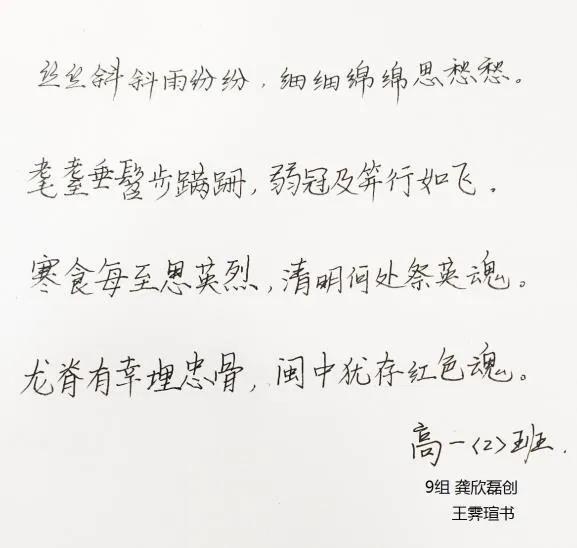 丝丝斜斜雨纷纷，细细绵绵思愁愁。
耄耋垂髫步蹒跚，弱冠及笄行如飞。
寒食每至思英烈，清明何处祭英魂。
龙脊有幸埋忠骨，闽中犹存红色魂。
高一〈2〉班.
9组 龚欣磊创
王霁瑄书